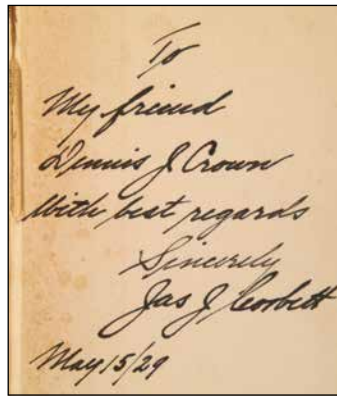 To
My friend
Dennis J Crown
With best regards
Sincerely
Jas J, Corbett
May 15/29